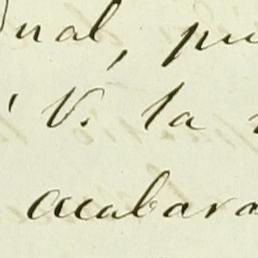 nal, pu
V. la
acabara